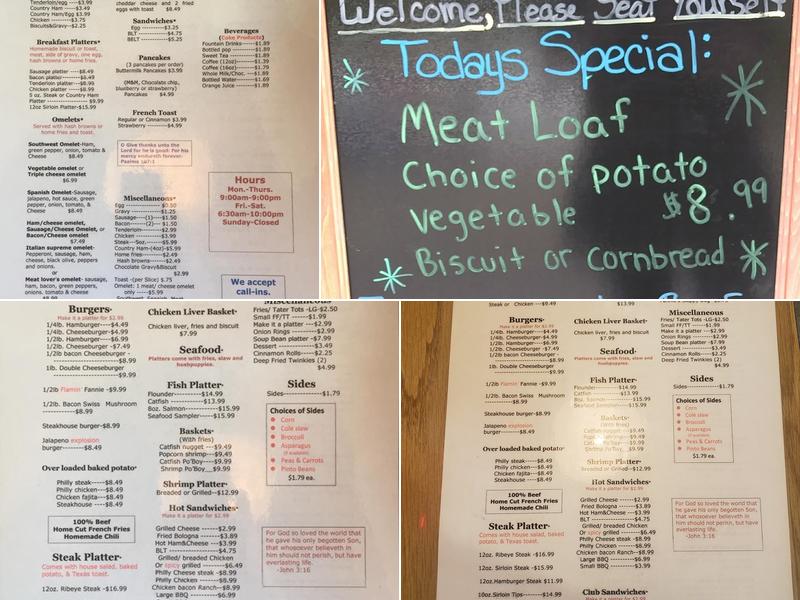 Tenderloin/egg ----$3.99
Country Ham---$3.49
Country Ham/Egg $3.99
Chicken-----$3.75
Biscuits&Gravy---$2.25
Breakfast Platters*
Homemade biscuit or toast,
meat, side of gravy, one egg,
hash browns or home fries.
Sausage platter ----$8.49
Bacon platter------$6.49
Tenderloin platter--$8.99
Chicken platter ---$8.99
5 oz. Steak or Country Ham
Platter ------------ $9.99
12oz Sirloin Platter--$15.99
Omelets*
Served with hash browns or
home fries and toast.
Southwest Omelet-Ham,
green pepper, onion, tomato &
Cheese $8.49
Vegetable omelet or
Triple cheese omelet
$6.99
Spanish Omelet-Sausage,
Jalapeno, hot sauce, green
pepper, onion, tomato, &
Cheese $8.49
Ham/cheese omelet,
Sausage/Cheese Omelet, or
Bacon/Cheese omelet
$7.49
Italian supreme omelet-
Pepperoni, sausage, ham,
cheese, black olive, peppers
and onions.
or
Meat lover's omelet- sausage,
ham, bacon, green peppers,
onions, tomato & cheese
cheddar cheese and 2 fried
eggs with toast $8.49
Sandwiches*
Egg --------$3.25
BLT --------$4.75
BELT -------$5.25
Pancakes
(3 pancakes per order)
Buttermilk Pancakes $3.99
(M&M, Chocolate chip,
blueberry or strawberry)
Pancakes $4.99
French Toast
Regular or Cinnamon $3.99
Strawberry ------$4.99
O Give thanks unto the
Lord for he is good: For his
mercy endureth forever.
Psalms 107:1
Miscellaneous*
Egg ----------$0.50
Gravy --------$1.25
Sausage---(1)----$1.50
Bacon-----(2)--- $1.50
Tenderloin------$2.99
Chicken --------$3.99
Steak---5oz.-----$5.99
Country Ham-(4oz)-$5.99
Home fries-----$2.49
Hash browns ---$2.49
Chocolate Gravy&Biscuit
$2.99
Toast -(per Slice) $.75
Omelet: 1 meat/ cheese omelet
only -----$5.99
Beverages
(Coke Products)
Fountain Drinks----$1.89
Bottled pop-------$1.89
Sweet Tea --------$1.89
Coffee (12oz)-----$1.39
Coffee (16oz)-----$1.79
Whole Milk/Choc. ---$1.89
Bottled Water-----$1.69
Orange Juice ------$1.89
Hours
Mon.-Thurs.
9:00am-9:00pm
Fri.-Sat.
6:30am-10:00pm
Sunday-Closed
We accept
call-ins.
Welcome, Please Seat Yourself
Todays Special:
Meat Loaf
Choice of potato
vegetable $8.99
Biscuit or cornbread
Burgers*
Make it a platter for $2.99
1/4lb. Hamburger----$4.49
1/4lb. Cheeseburger-$4.99
1/2lb. Hamburger---$6.99
1/2lb. Cheeseburger -$7.49
1/2lb bacon Cheeseburger -
-----------------------$8.99
1lb. Double Cheeseburger
-----------------------$9.99
1/2lb Flamin' Fannie -$9.99
1/2lb. Bacon Swiss Mushroom
-----------$8.99
Steakhouse burger-$8.99
Jalapeno explosion
burger------$8.49
Over loaded baked potato*
Philly steak----$8.49
Philly chicken---$8.49
Chicken fajita---$8.49
Steakhouse ----$8.49
100% Beef
Home Cut French Fries
Homemade Chili
Steak Platter*
Comes with house salad, baked
potato, & Texas toast.
12oz. Ribeye Steak -$16.99
Chicken Liver Basket*
Chicken liver, fries and biscuit
$7.99
Seafood*
Platters come with fries, slaw and
hushpuppies.
Fish Platter*
Flounder----------$14.99
Catfish -----------$13.99
8oz. Salmon------$15.99
Seafood Sampler----$15.99
Baskets*
(With fries)
Catfish nugget ---$9.49
Popcorn shrimp---$9.49
Catfish Po'Boy---$9.99
Shrimp Po'Boy__$9.99
Shrimp Platter*
Breaded or Grilled--$12.99
Hot Sandwiches*
Make it a platter for $2.99
Grilled Cheese------$2.99
Fried Bologna -----$3.89
Hot Ham&Cheese---$3.99
BLT ---------------$4.75
Grilled/ breaded Chicken
Or spicy grilled -----$6.49
Philly Cheese steak -$8.99
Philly Chicken -----$8.99
Chicken bacon Ranch--$8.99
Large BBQ -------$6.99
Miscellaneous
Fries/ Tater Tots -LG-$2.50
Small FF/TT ------$1.99
Make it a platter ---$2.99
Onion Rings -------$2.99
Soup Bean platter -$7.99
Dessert -----------$3.49
Cinnamon Rolls----$2.25
Deep Fried Twinkies (2)
$4.99
Sides
Sides-----------$1.79
Choices of Sides
Corn
Cole slaw
Broccoli
Asparagus
(if available)
Peas & Carrots
Pinto Beans
$1.79 ea.
For God so loved the world that
he gave his only begotten Son,
that whosoever believeth in
him should not perish, but have
everlasting life.
-John 3:16
Steak or Chicken ---$9.49
Burgers*
Make it a platter for $2.99
1/4lb. Hamburger----$4.49
1/4lb. Cheeseburger-$4.99
1/2lb. Hamburger---$6.99
1/2lb. Cheeseburger -$7.49
1/2lb bacon Cheeseburger -
-----------------------$8.99
1lb. Double Cheeseburger
-----------------------$9.99
1/2lb Flamin' Fannie -$9.99
1/2lb. Bacon Swiss Mushroom
-----------$8.99
Steakhouse burger-$8.99
Jalapeno explosion
burger------$8.49
Over loaded baked potato*
Philly steak----$8.49
Philly chicken---$8.49
Chicken fajita---$8.49
Steakhouse ----$8.49
100% Beef
Home Cut French Fries
Homemade Chili
Steak Platter*
Comes with house salad, baked
potato, & Texas toast.
12oz. Ribeye Steak -$16.99
12oz. Sirloin Steak -$15.99
12oz.Hamburger Steak $11.99
10oz.Sirloin Tips-----$14.99
$13.99
Chicken Liver Basket*
Chicken liver, fries and biscuit
$7.99
Seafood*
Platters come with fries, slaw and
hushpuppies.
Fish Platter*
Flounder----------$14.99
Catfish -----------$13.99
8oz. Salmon------$15.99
Seafood Sampler----$15.99
Baskets*
(With fries)
Catfish nugget ---$9.49
Popcorn shrimp---$9.49
Catfish Po'Boy---$9.99
Shrimp Po'Boy__$9.99
Shrimp Platter*
Breaded or Grilled--$12.99
Hot Sandwiches*
Make it a platter for $2.99
Grilled Cheese------$2.99
Fried Bologna -----$3.89
Hot Ham&Cheese---$3.99
BLT ---------------$4.75
Grilled/ breaded Chicken
Or spicy grilled -----$6.49
Philly Cheese steak -$8.99
Philly Chicken -----$8.99
Chicken bacon Ranch--$8.99
Large BBQ -------$6.99
Small BBQ -------$3.99
Club Sandwiches*
Miscellaneous
Fries/ Tater Tots -LG-$2.50
Small FF/TT ------$1.99
Make it a platter ---$2.99
Onion Rings -------$2.99
Soup Bean platter -$7.99
Dessert -----------$3.49
Cinnamon Rolls----$2.25
Deep Fried Twinkies (2)
$4.99
Sides
Sides-----------$1.79
Choices of Sides
Corn
Cole slaw
Broccoli
Asparagus
(if available)
Peas & Carrots
Pinto Beans
$1.79 ea.
For God so loved the world that
he gave his only begotten Son,
that whosoever believeth in
him should not perish, but have
everlasting life.
-John 3:16